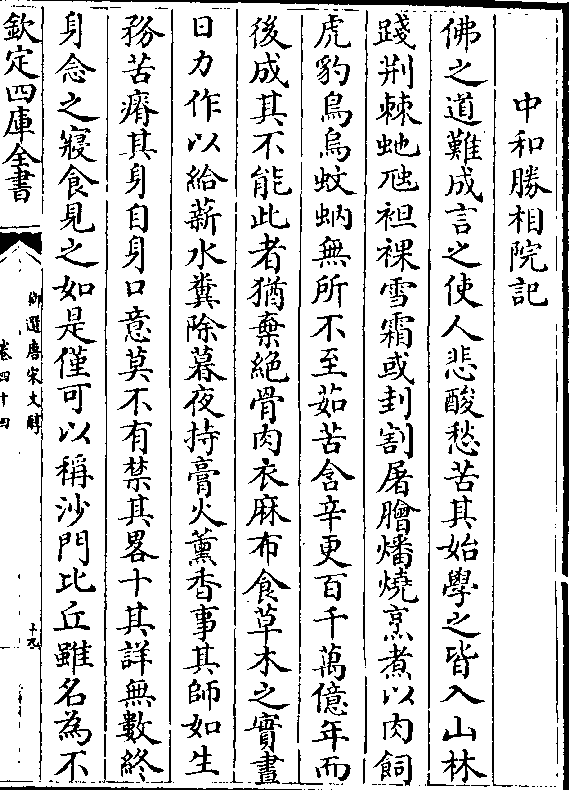 中和勝相院記
佛之道難成言之使人悲酸愁苦其始學之皆入山林
踐荆棘虵虺袒裸雪霜或刲割屠膾燔燒烹煮以肉飼
虎豹鳥烏蚊蚋無所不至茹苦含辛更百千萬億年而
後成其不能此者猶棄絶骨肉衣麻布食草木之實晝
日力作以給薪水糞除暮夜持膏火薰香事其師如生
務苦瘠其身自身口意莫不有禁其畧十其詳無數終
身念之寢食見之如是僅可以稱沙門比丘雖名為不
欽定四庫全書
御選唐宋文醇
卷四十四
十九